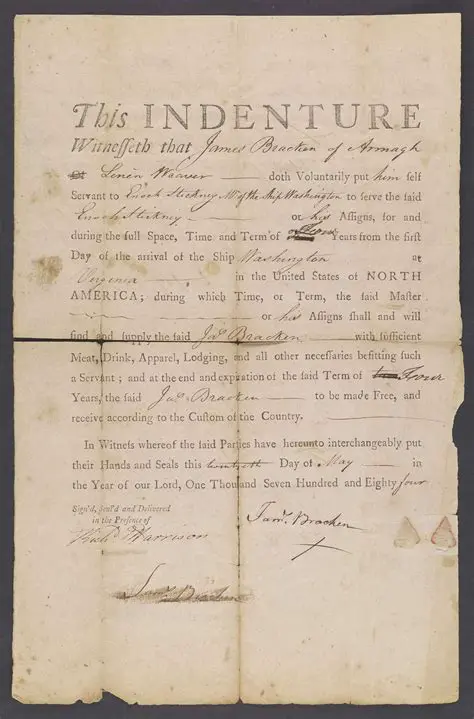 This INDENTURE
Witnesseth that James Bracken of Armagh
Linen Weaver doth Voluntarily put him self
Servant to Enoch Stickney Mr. of the Ship Washington to serve the said
Enoch Stickney or his Assigns, for and
during the full Space, Time and Term of Four Years from the first
Day of the arrival of the Ship Washington at
Virginia in the United States of NORTH
AMERICA; during which Time, or Term, the said Master
or his Assigns shall and will
find and supply the said Jas. Bracken with sufficient
Meat, Drink, Apparel, Lodging, and all other necessaries befitting such
a Servant; and at the end and expiration of the said Term of Four
Years, the said Jas. Bracken to be made Free, and
receive according to the Custom of the Country.
In Witness whereof the said Parties have hereunto interchangeably put
their Hands and Seals this Day of May in
the Year of our Lord, One Thousand Seven Hundred and Eighty four
Sign'd, Seal'd and Delivered
in the Presence of
Harrison
Jams. Bracken
X
Jams. Bracken